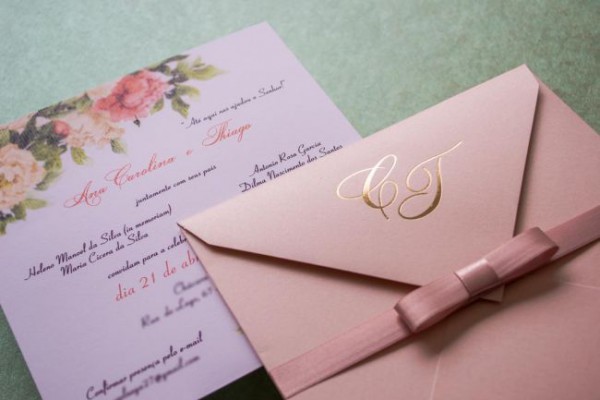 "Até aqui nos ajudou o Senhor!"
Ana Carolina e Thiago
juntamente com seus pais
Heleno Manoel da Silva (in memoriam)
Maria Cícera da Silva
Antonio Rosa Garcia
Dilma Nascimento dos Santos
convidam para a celebra
dia 21 de ab
Rua do Lago, 67
Confirmar presença pelo e-mail
CT